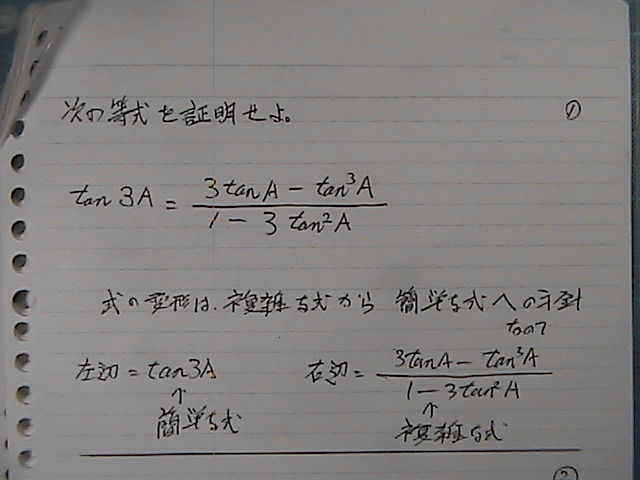 次の等式を証明せよ。 ①
tan 3A = (3tanA - tan³A) / (1 - 3 tan²A)
式の変形は、複雑な式から 簡単な式への方針
なので
左辺 = tan3A 右辺 = (3tanA - tan³A) / (1 - 3tan²A)
↑ ↑
簡単な式 複雑な式
②